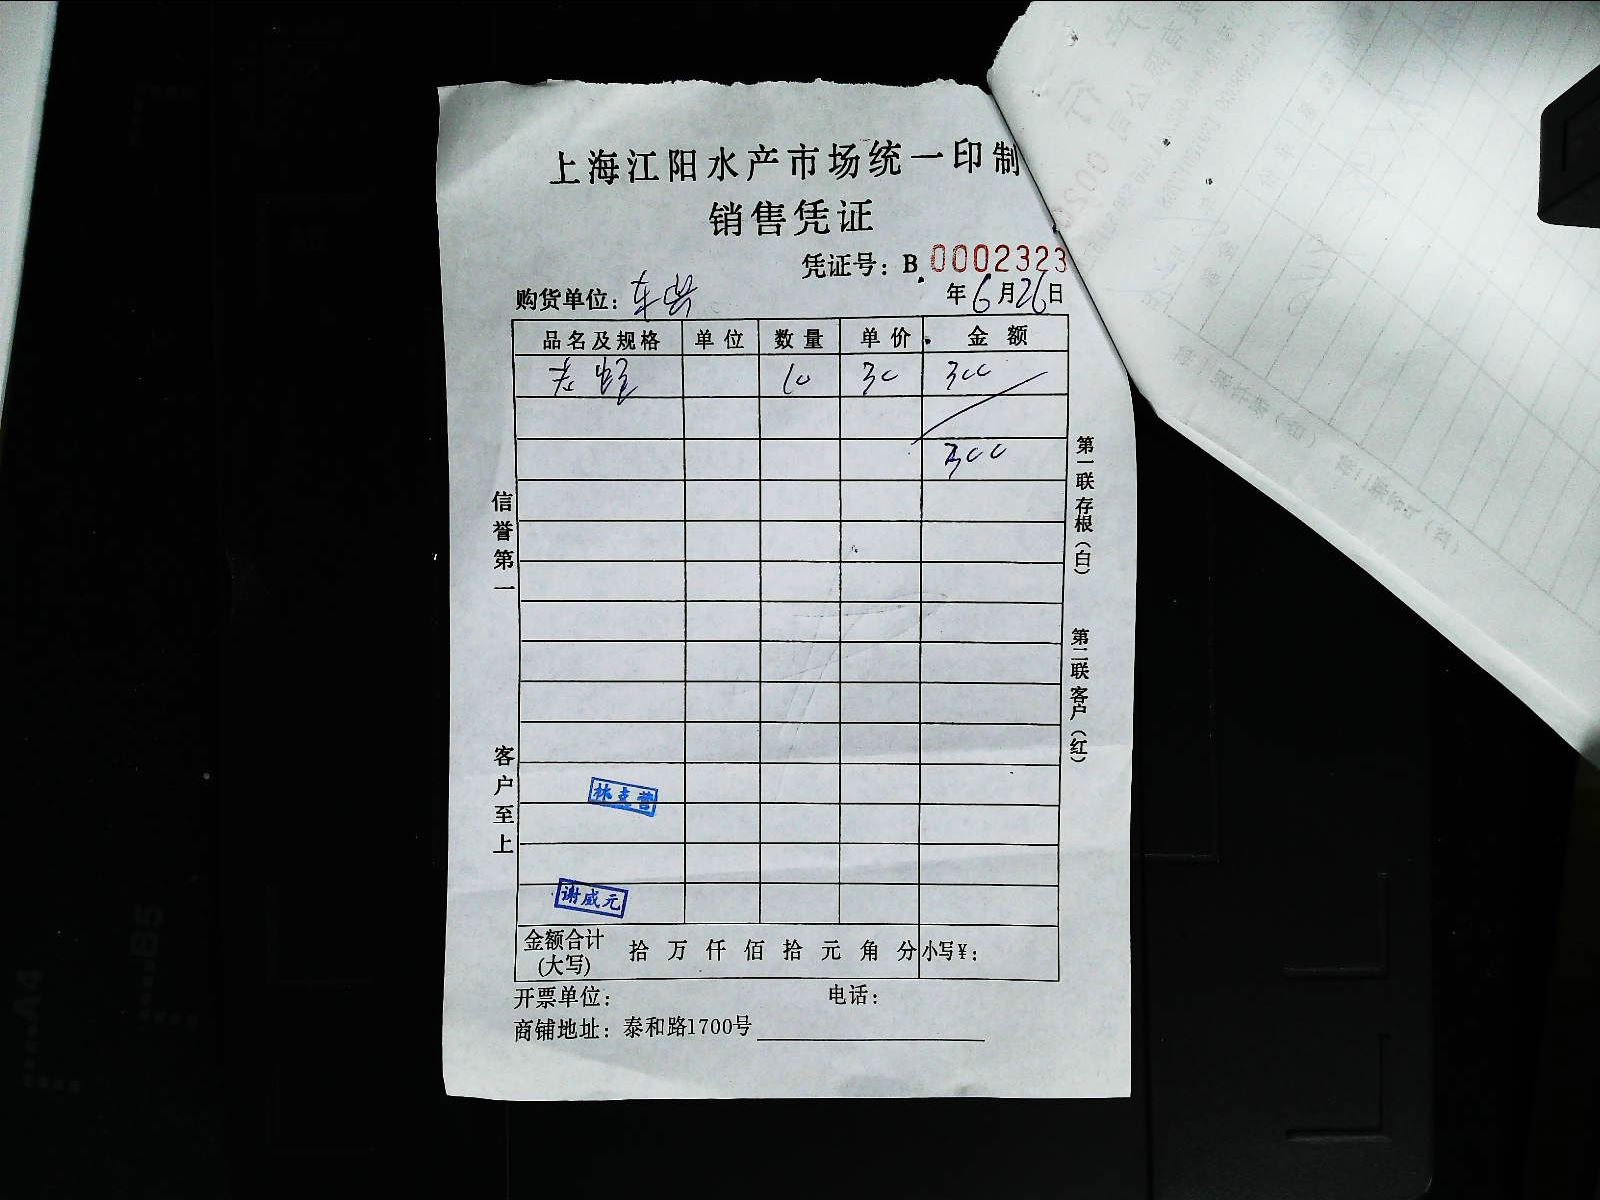 上海江阳水产市场统一印制
销售凭证
凭证号：B 0002323
购货单位： 年6月26日
品名及规格 单位 数量 单价 金额
10 30 300
300
信誉第一
客户至上
第一联存根（白）
第二联客户（红）
林主营
谢威元
金额合计(大写) 拾 万 仟 佰 拾 元 角 分 小写¥：
开票单位： 电话：
商铺地址：泰和路1700号